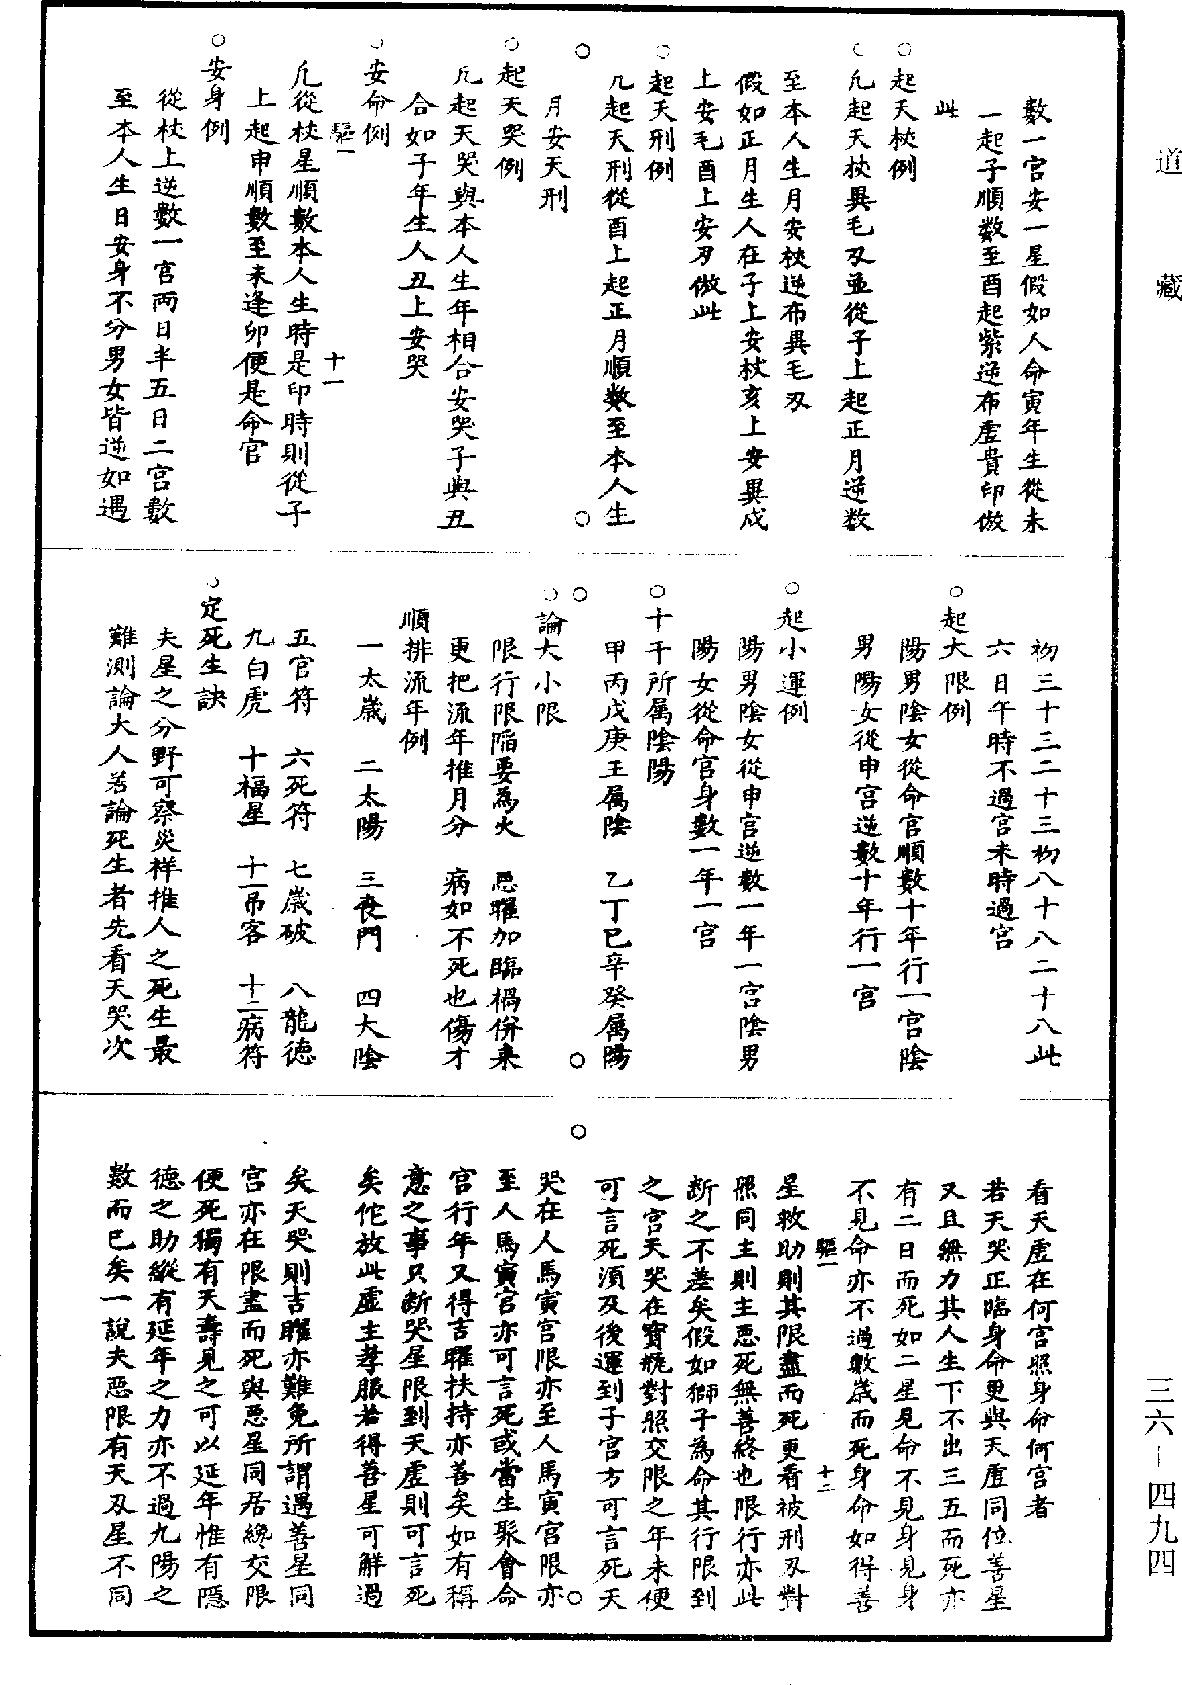 道藏
數一宮安一星假如人命寅年生從未
一起子順数至酉起紫逆布虛貴印倣
此
○起天杖例
○凢起天杖異毛刃並從子上起正月逆数
至本人生月安杖逆布異毛刃
假如正月生人在子上安杖亥上安異戍
上安毛酉上安刃倣此
○起天刑例
凢起天刑從酉上起正月順數至本人生
月安天刑
○起天哭例
凢起天哭與本人生年相合安哭子與丑
合如子年生人丑上安哭
○安命例
驅一 十一
凢從杖星順數本人生時是卯時則從子
上起申順數至未逢卯便是命官
○安身例
從杖上逆數一宮兩日半五日二宮數
至本人生日安身不分男女皆逆如遇
初三十三二十三初八十八二十八此
六日午時不過宮未時過宮
○起大限例
陽男陰女從命官順數十年行一宮陰
男陽女從申宮逆數十年行一宮
○起小運例
陽男陰女從申宮逆數一年一宮陰男
陽女從命官身數一年一宮
○十干所属陰陽
甲丙戊庚王属陰 乙丁巳辛癸属陽
○論大小限
限行限陷要為火 惡曜加臨禍併来
更把流年推月分 病如不死也傷才
順排流年例
一太歲 二太陽 三喪門 四大陰
五官符 六死符 七歲破 八龍德
九白虎 十福星 十一吊客 十二病符
○定死生訣
夫星之分野可察災祥推人之死生最
難測論大人若論死生者先看天哭次
看天虛在何宮照身命何宮者
若天哭正臨身命更與天虛同位善星
又且無力其人生下不出三五而死亦
有二日而死如二星見命不見身見身
不見命亦不過數歲而死身命如得善
驅一 十二
星救助則其限盡而死更看被刑刃對
照同主則主惡死無善終也限行亦此
断之不差矣假如獅子為命其行限到
之宮天哭在寶瓶對照交限之年未便
可言死須及後運到子宮方可言死天
哭在人馬寅宮限亦至人馬寅宮限亦
至人馬寅官亦可言死或當生聚會命
官行年又得吉曜扶持亦善矣如有稱
意之事只断哭星限到天虛則可言死
矣佗放此虛主孝服若得善星可解過
矣天哭則吉曜亦難免所謂遇善星同
宮亦在限盡而死與惡星同居終交限
便死獨有天壽見之可以延年惟有隱
德之助縱有延年之力亦不過九陽之
數而已矣一說夫惡限有天刃星不同
三六－四九四